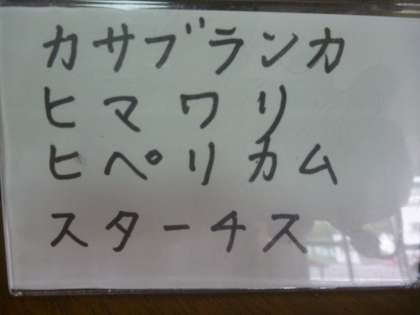 カサブランカ
ヒマワリ
ヒペリカム
スターチス